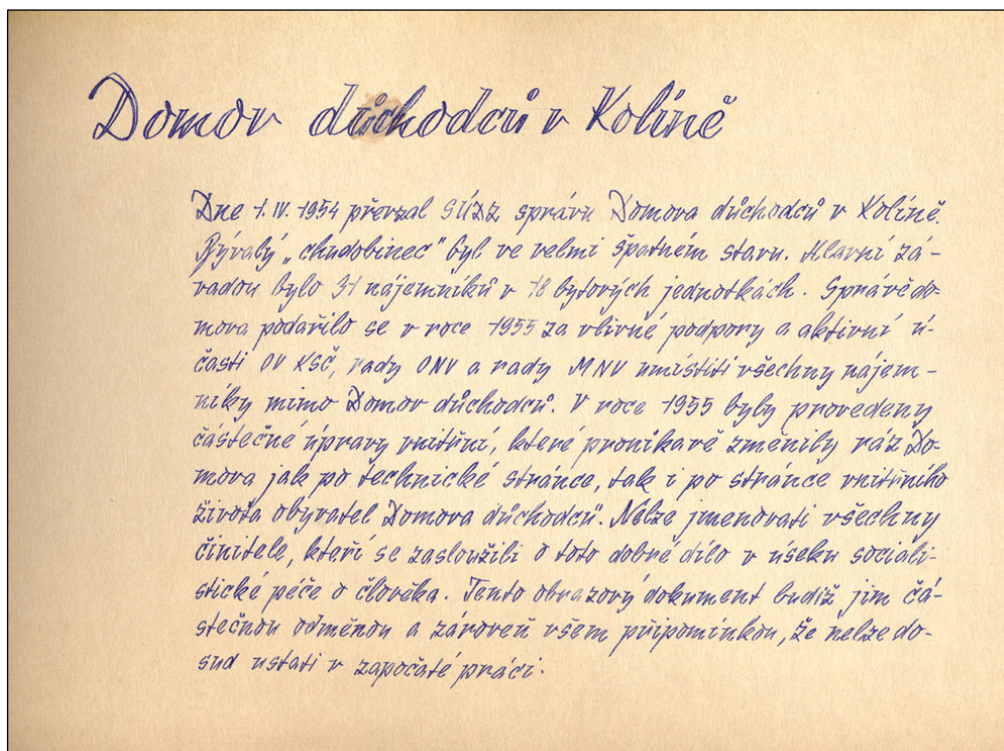 Domov důchodců v Kolíně
Dne 1. IV. 1954 převzal SÚDZ správu Domova důchodců v Kolíně.
Bývalý „chudobinec" byl ve velmi špatném stavu. Hlavní zá-
vadou bylo 31 nájemníků v 18 bytových jednotkách. Správě do-
mova podařilo se v roce 1955 za vlivné podpory a aktivní ú-
časti OV KSČ, rady ONV a rady MNV umístiti všechny nájem-
níky mimo Domov důchodců. V roce 1955 byly provedeny
částečné úpravy vnitřní, které pronikavě změnily ráz Do-
mova jak po technické stránce, tak i po stránce vnitřního
života obyvatel Domova důchodců. Nelze jmenovati všechny
činitele, kteří se zasloužili o toto dobré dílo v úseku sociali-
stické péče o člověka. Tento obrazový dokument budiž jim čá-
stečnou odměnou a zároveň všem připomínkou, že nelze do-
sud ustati v započaté práci.